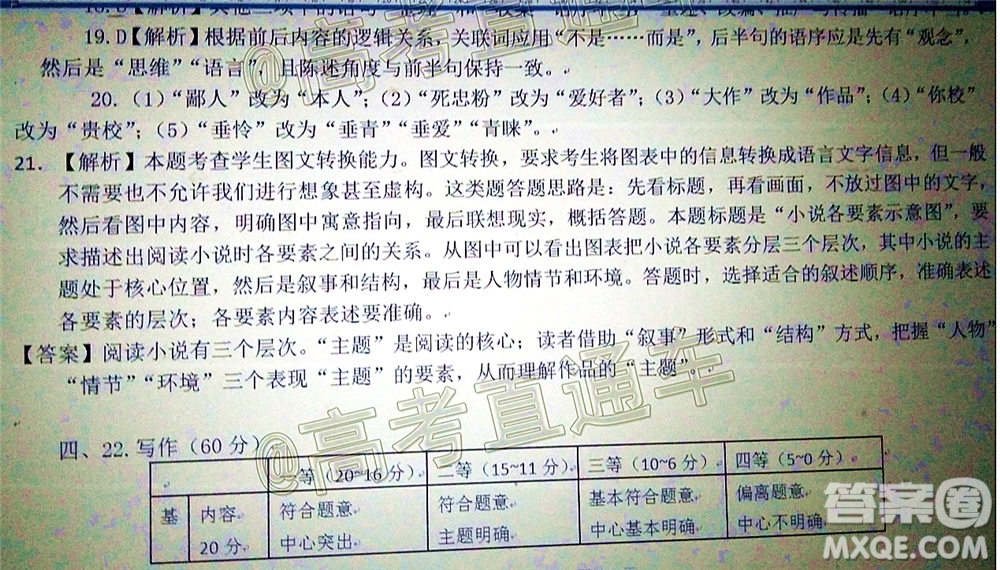 19.D【解析】根据前后内容的逻辑关系，关联词应用“不是……而是”，后半句的语序应是先有“观念”，
然后是“思维”“语言”，且陈述角度与前半句保持一致。
20.（1）“鄙人”改为“本人”；（2）“死忠粉”改为“爱好者”；（3）“大作”改为“作品”；（4）“你校”
改为“贵校”；（5）“垂怜”改为“垂青”“垂爱”“青睐”。
21. 【解析】本题考查学生图文转换能力。图文转换，要求考生将图表中的信息转换成语言文字信息，但一般
不需要也不允许我们进行想象甚至虚构。这类题答题思路是：先看标题，再看画面，不放过图中的文字，
然后看图中内容，明确图中寓意指向，最后联想现实，概括答题。本题标题是“小说各要素示意图”，要
求描述出阅读小说时各要素之间的关系。从图中可以看出图表把小说各要素分层三个层次，其中小说的主
题处于核心位置，然后是叙事和结构，最后是人物情节和环境。答题时，选择适合的叙述顺序，准确表述
各要素的层次；各要素内容表述要准确。
【答案】阅读小说有三个层次。“主题”是阅读的核心；读者借助“叙事”形式和“结构”方式，把握“人物”
“情节”“环境”三个表现“主题”的要素，从而理解作品的“主题”。
@高考直通车
四、22.写作（60 分）
一等（20~16 分） 二等（15~11 分） 三等（10~6 分） 四等（5~0 分）
基 内容 符合题意 符合题意 基本符合题意 偏离题意
20 分 中心突出 主题明确 中心基本明确 中心不明确
答案圈
MXQE.COM